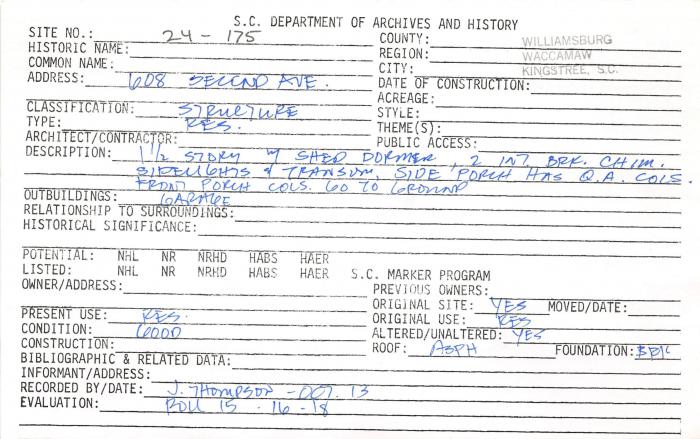 S.C. DEPARTMENT OF ARCHIVES AND HISTORY
SITE NO.: 24 - 175 COUNTY: WILLIAMSBURG
HISTORIC NAME: REGION: WACCAMAW
COMMON NAME: CITY: KINGSTREE, S.C.
ADDRESS: 608 SECOND AVE. DATE OF CONSTRUCTION:
ACREAGE:
CLASSIFICATION: STRUCTURE STYLE:
TYPE: RES. THEME(S):
ARCHITECT/CONTRACTOR: PUBLIC ACCESS:
DESCRIPTION: 1 1/2 STORY W/ SHED DORMER, 2 INT. BRK. CHIM.
SIDELIGHTS & TRANSOM, SIDE PORCH HAS Q.A. COLS.
FRONT PORCH COLS. GO TO GROUND
OUTBUILDINGS: GARAGE
RELATIONSHIP TO SURROUNDINGS:
HISTORICAL SIGNIFICANCE:
POTENTIAL: NHL NR NRHD HABS HAER
LISTED: NHL NR NRHD HABS HAER S.C. MARKER PROGRAM
OWNER/ADDRESS: PREVIOUS OWNERS:
ORIGINAL SITE: YES MOVED/DATE:
PRESENT USE: RES. ORIGINAL USE: RES
CONDITION: GOOD ALTERED/UNALTERED: YES
CONSTRUCTION: ROOF: ASPH FOUNDATION: BRK
BIBLIOGRAPHIC & RELATED DATA:
INFORMANT/ADDRESS:
RECORDED BY/DATE: J. THOMPSON - OCT. 13
EVALUATION: ROLL 15 - 16 - 18